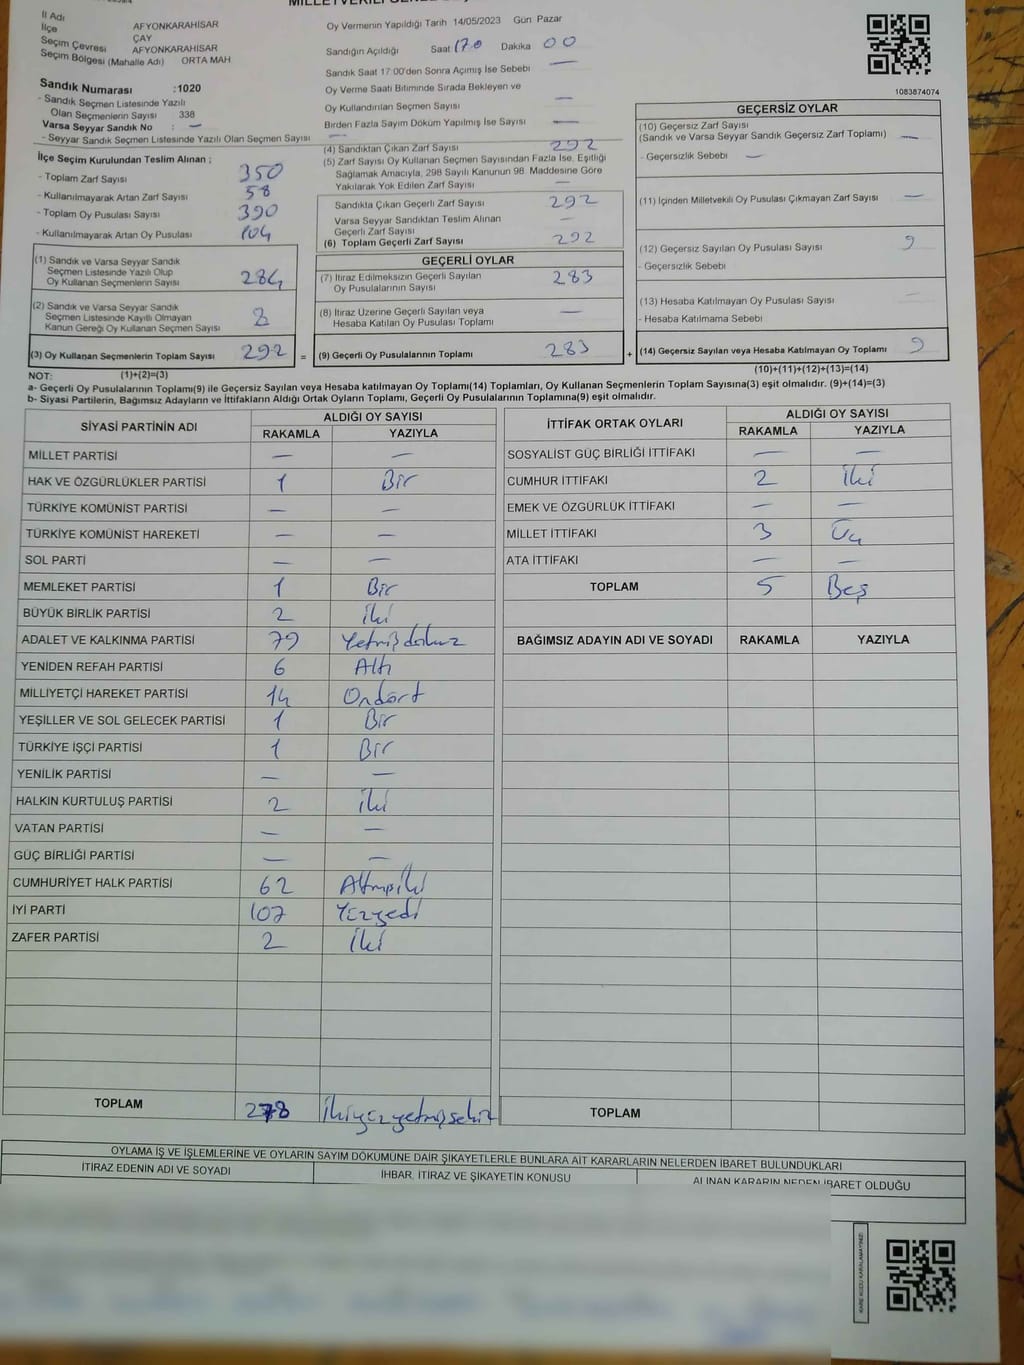 İl Adı AFYONKARAHİSAR
İlçe ÇAY
Seçim Çevresi AFYONKARAHİSAR
Seçim Bölgesi (Mahalle Adı) ORTA MAH
Sandık Numarası :1020
- Sandık Seçmen Listesinde Yazılı
Olan Seçmenlerin Sayısı 338
Varsa Seyyar Sandık No : —
- Seyyar Sandık Seçmen Listesinde Yazılı Olan Seçmen Sayısı —
İlçe Seçim Kurulundan Teslim Alınan ;
- Toplam Zarf Sayısı 350
- Kullanılmayarak Artan Zarf Sayısı 58
- Toplam Oy Pusulası Sayısı 390
- Kullanılmayarak Artan Oy Pusulası 104
(1) Sandık ve Varsa Seyyar Sandık
Seçmen Listesinde Yazılı Olup
Oy Kullanan Seçmenlerin Sayısı 284
(2) Sandık ve Varsa Seyyar Sandık
Seçmen Listesinde Kayıtlı Olmayan
Kanun Gereği Oy Kullanan Seçmen Sayısı 8
(3) Oy Kullanan Seçmenlerin Toplam Sayısı 292 =
Oy Vermenin Yapıldığı Tarih 14/05/2023 Gün Pazar
Sandığın Açıldığı Saat 17.0 Dakika 00
Sandık Saat 17:00'den Sonra Açımış İse Sebebi —
Oy Verme Saati Bitiminde Sırada Bekleyen ve
Oy Kullandırılan Seçmen Sayısı —
Birden Fazla Sayım Döküm Yapılmış İse Sayısı —
(4) Sandıktan Çıkan Zarf Sayısı 292
(5) Zarf Sayısı Oy Kullanan Seçmen Sayısından Fazla İse, Eşitliği
Sağlamak Amacıyla, 298 Sayılı Kanunun 98. Maddesine Göre
Yakılarak Yok Edilen Zarf Sayısı —
Sandıkta Çıkan Geçerli Zarf Sayısı 292
Varsa Seyyar Sandıktan Teslim Alınan
Geçerli Zarf Sayısı —
(6) Toplam Geçerli Zarf Sayısı 292
GEÇERLİ OYLAR
(7) İtiraz Edilmeksizin Geçerli Sayılan
Oy Pusulalarının Sayısı 283
(8) İtiraz Üzerine Geçerli Sayılan veya
Hesaba Katılan Oy Pusulası Toplamı —
(9) Geçerli Oy Pusulalarının Toplamı 283 +
1083874074
GEÇERSİZ OYLAR
(10) Geçersiz Zarf Sayısı
(Sandık ve Varsa Seyyar Sandık Geçersiz Zarf Toplamı) —
- Geçersizlik Sebebi —
(11) İçinden Milletvekili Oy Pusulası Çıkmayan Zarf Sayısı —
(12) Geçersiz Sayılan Oy Pusulası Sayısı 9
- Geçersizlik Sebebi
(13) Hesaba Katılmayan Oy Pusulası Sayısı —
- Hesaba Katılmama Sebebi
(14) Geçersiz Sayılan veya Hesaba Katılmayan Oy Toplamı 9
NOT: (1)+(2)=(3) (10)+(11)+(12)+(13)=(14)
a- Geçerli Oy Pusulalarının Toplamı(9) ile Geçersiz Sayılan veya Hesaba katılmayan Oy Toplamı(14) Toplamları, Oy Kullanan Seçmenlerin Toplam Sayısına(3) eşit olmalıdır. (9)+(14)=(3)
b- Siyasi Partilerin, Bağımsız Adayların ve İttifakların Aldığı Ortak Oyların Toplamı, Geçerli Oy Pusulalarının Toplamına(9) eşit olmalıdır.
SİYASİ PARTİNİN ADI ALDIĞI OY SAYISI
RAKAMLA YAZIYLA
MİLLET PARTİSİ — —
HAK VE ÖZGÜRLÜKLER PARTİSİ 1 Bir
TÜRKİYE KOMÜNİST PARTİSİ — —
TÜRKİYE KOMÜNİST HAREKETİ — —
SOL PARTİ — —
MEMLEKET PARTİSİ 1 Bir
BÜYÜK BİRLİK PARTİSİ 2 iki
ADALET VE KALKINMA PARTİSİ 79 Yetmişdokuz
YENİDEN REFAH PARTİSİ 6 Altı
MİLLİYETÇİ HAREKET PARTİSİ 14 Ondört
YEŞİLLER VE SOL GELECEK PARTİSİ 1 Bir
TÜRKİYE İŞÇİ PARTİSİ 1 Bir
YENİLİK PARTİSİ — —
HALKIN KURTULUŞ PARTİSİ 2 iki
VATAN PARTİSİ — —
GÜÇ BİRLİĞİ PARTİSİ — —
CUMHURİYET HALK PARTİSİ 62 Altmışiki
İYİ PARTİ 107 Yüzyedi
ZAFER PARTİSİ 2 iki
TOPLAM 278 ikiyüzyetmişsekiz
İTTİFAK ORTAK OYLARI ALDIĞI OY SAYISI
RAKAMLA YAZIYLA
SOSYALİST GÜÇ BİRLİĞİ İTTİFAKI — —
CUMHUR İTTİFAKI 2 iki
EMEK VE ÖZGÜRLÜK İTTİFAKI — —
MİLLET İTTİFAKI 3 Üç
ATA İTTİFAKI — —
TOPLAM 5 Beş
BAĞIMSIZ ADAYIN ADI VE SOYADI RAKAMLA YAZIYLA
TOPLAM
OYLAMA İŞ VE İŞLEMLERİNE VE OYLARIN SAYIM DÖKÜMÜNE DAİR ŞİKAYETLERLE BUNLARA AİT KARARLARIN NELERDEN İBARET BULUNDUKLARI
İTİRAZ EDENİN ADI VE SOYADI İHBAR, İTİRAZ VE ŞİKAYETİN KONUSU ALINAN KARARIN NEDEN İBARET OLDUĞU
KARE KODU KARALAMAYINIZ!